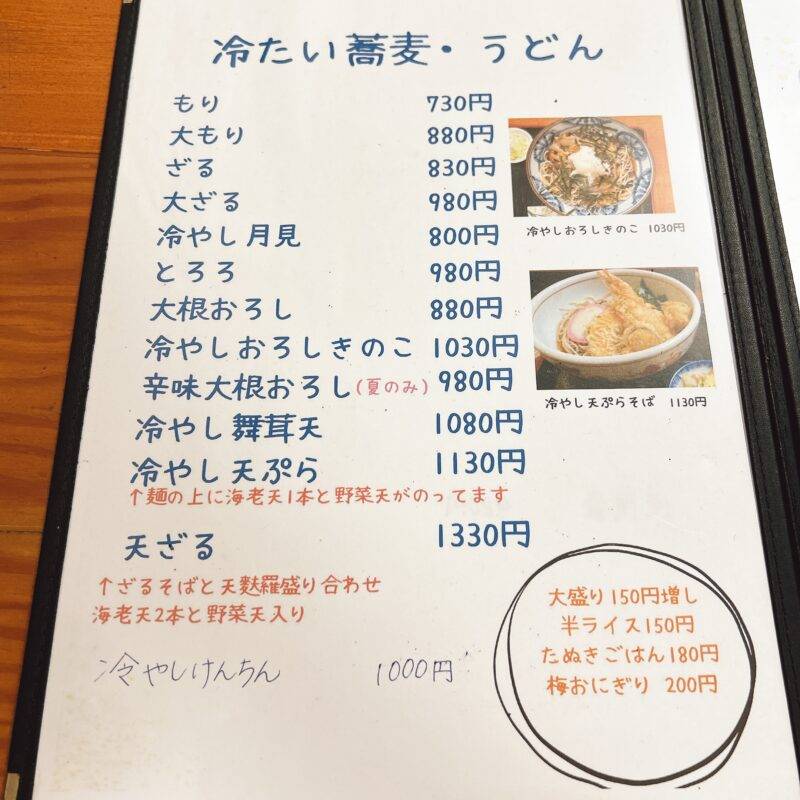 冷たい蕎麦・うどん
もり 730円
大もり 880円
ざる 830円
大ざる 980円
冷やし月見 800円
とろろ 980円
大根おろし 880円
冷やしおろしきのこ 1030円
辛味大根おろし(夏のみ) 980円
冷やし舞茸天 1080円
冷やし天ぷら 1130円
↑麺の上に海老天1本と野菜天がのってます
天ざる 1330円
↑ざるそばと天麩羅盛り合わせ
海老天2本と野菜天入り
冷やしけんちん 1000円
冷やしおろしきのこ 1030円
冷やし天ぷらそば 1130円
大盛り150円増し
半ライス150円
たぬきごはん180円
梅おにぎり 200円